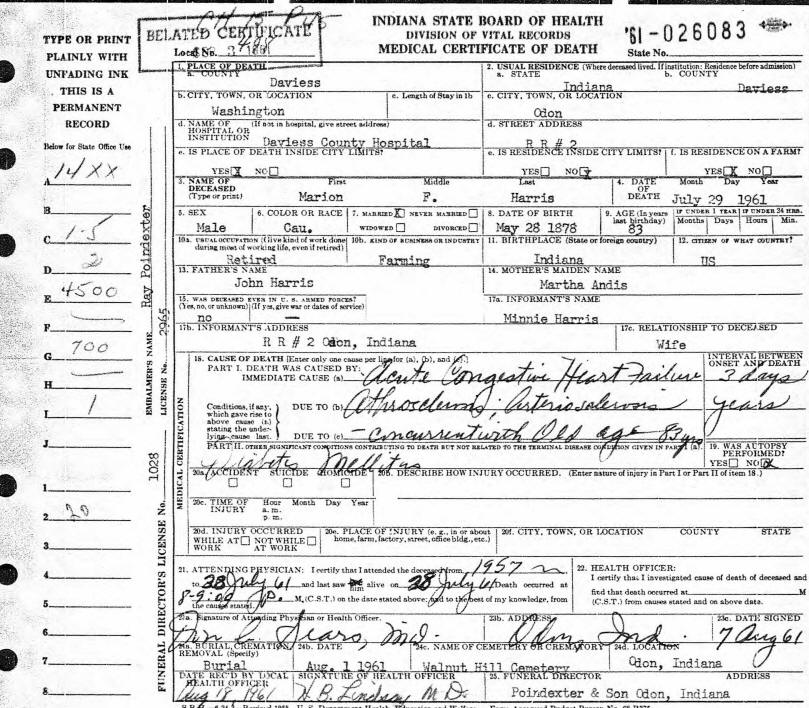 INDIANA STATE BOARD OF HEALTH
DIVISION OF VITAL RECORDS
MEDICAL CERTIFICATE OF DEATH
'61-026083
State No.
BELATED CERTIFICATE
Local No.
TYPE OR PRINT
PLAINLY WITH
UNFADING INK
THIS IS A
PERMANENT
RECORD
Below for State Office Use
14XX
A
B
C 1-5
D 2
E 4500
F
G 700
H
I 1
J
1
2 20
3
4
5
6
7
8
EMBALMER'S NAME Ray Poindexter
LICENSE No. 2965
FUNERAL DIRECTOR'S LICENSE No. 1028
MEDICAL CERTIFICATION
1. PLACE OF DEATH
a. COUNTY
Daviess
2. USUAL RESIDENCE (Where deceased lived. If institution: Residence before admission)
a. STATE b. COUNTY
Indiana Daviess
b. CITY, TOWN, OR LOCATION c. Length of Stay in 1b
Washington
c. CITY, TOWN, OR LOCATION
Odon
d. NAME OF (If not in hospital, give street address)
HOSPITAL OR
INSTITUTION Daviess County Hospital
d. STREET ADDRESS
R R # 2
e. IS PLACE OF DEATH INSIDE CITY LIMITS?
YES X NO
e. IS RESIDENCE INSIDE CITY LIMITS? f. IS RESIDENCE ON A FARM?
YES NO X YES X NO
3. NAME OF First Middle Last
DECEASED
(Type or print) Marion F. Harris
4. DATE Month Day Year
OF
DEATH July 29 1961
5. SEX 6. COLOR OR RACE 7. MARRIED X NEVER MARRIED 8. DATE OF BIRTH 9. AGE (In years last birthday) IF UNDER 1 YEAR IF UNDER 24 HRS.
Months Days Hours Min.
Male Cau. WIDOWED DIVORCED May 28 1878 83
10a. USUAL OCCUPATION (Give kind of work done during most of working life, even if retired) 10b. KIND OF BUSINESS OR INDUSTRY 11. BIRTHPLACE (State or foreign country) 12. CITIZEN OF WHAT COUNTRY?
Retired Farming Indiana US
13. FATHER'S NAME 14. MOTHER'S MAIDEN NAME
John Harris Martha Andis
15. WAS DECEASED EVER IN U. S. ARMED FORCES? 17a. INFORMANT'S NAME
(Yes, no, or unknown) (If yes, give war or dates of service)
no — Minnie Harris
17b. INFORMANT'S ADDRESS 17c. RELATIONSHIP TO DECEASED
R R # 2 Odon, Indiana Wife
18. CAUSE OF DEATH [Enter only one cause per line for (a), (b), and (c).] INTERVAL BETWEEN
ONSET AND DEATH
PART I. DEATH WAS CAUSED BY:
IMMEDIATE CAUSE (a) Acute Congestive Heart Failure 3 days
Conditions, if any,
which gave rise to
above cause (a)
stating the under-
lying cause last.
DUE TO (b) Athrosclerosis; Arteriosclerosis years
DUE TO (c) - concurrent with Old age 83 yrs
PART II. OTHER SIGNIFICANT CONDITIONS CONTRIBUTING TO DEATH BUT NOT RELATED TO THE TERMINAL DISEASE CONDITION GIVEN IN PART I (a).
Diabetis Mellitus
19. WAS AUTOPSY
PERFORMED?
YES NO X
20a. ACCIDENT SUICIDE HOMICIDE 20b. DESCRIBE HOW INJURY OCCURRED. (Enter nature of injury in Part I or Part II of item 18.)
20c. TIME OF Hour Month Day Year
INJURY a. m.
p. m.
20d. INJURY OCCURRED 20e. PLACE OF INJURY (e. g., in or about home, farm, factory, street, office bldg., etc.) 20f. CITY, TOWN, OR LOCATION COUNTY STATE
WHILE AT NOT WHILE
WORK AT WORK
21. ATTENDING PHYSICIAN: I certify that I attended the deceased from 1957
to 28 July 61 and last saw him alive on 28 July 61 Death occurred at
M. (C.S.T.) on the date stated above; and to the best of my knowledge, from
the causes stated.
22. HEALTH OFFICER:
I certify that I investigated cause of death of deceased and
find that death occurred at M
(C.S.T.) from causes stated and on above date.
23a. Signature of Attending Physician or Health Officer. 23b. ADDRESS 23c. DATE SIGNED
Sears, M.D. Odon, Ind. 7 Aug 61
24a. BURIAL, CREMATION, REMOVAL (Specify) 24b. DATE 24c. NAME OF CEMETERY OR CREMATORY 24d. LOCATION
Burial Aug. 1 1961 Walnut Hill Cemetery Odon, Indiana
DATE REC'D BY LOCAL
HEALTH OFFICER SIGNATURE OF HEALTH OFFICER 25. FUNERAL DIRECTOR ADDRESS
Aug 18, 1961 H. B. Lindsay M D. Poindexter & Son Odon, Indiana